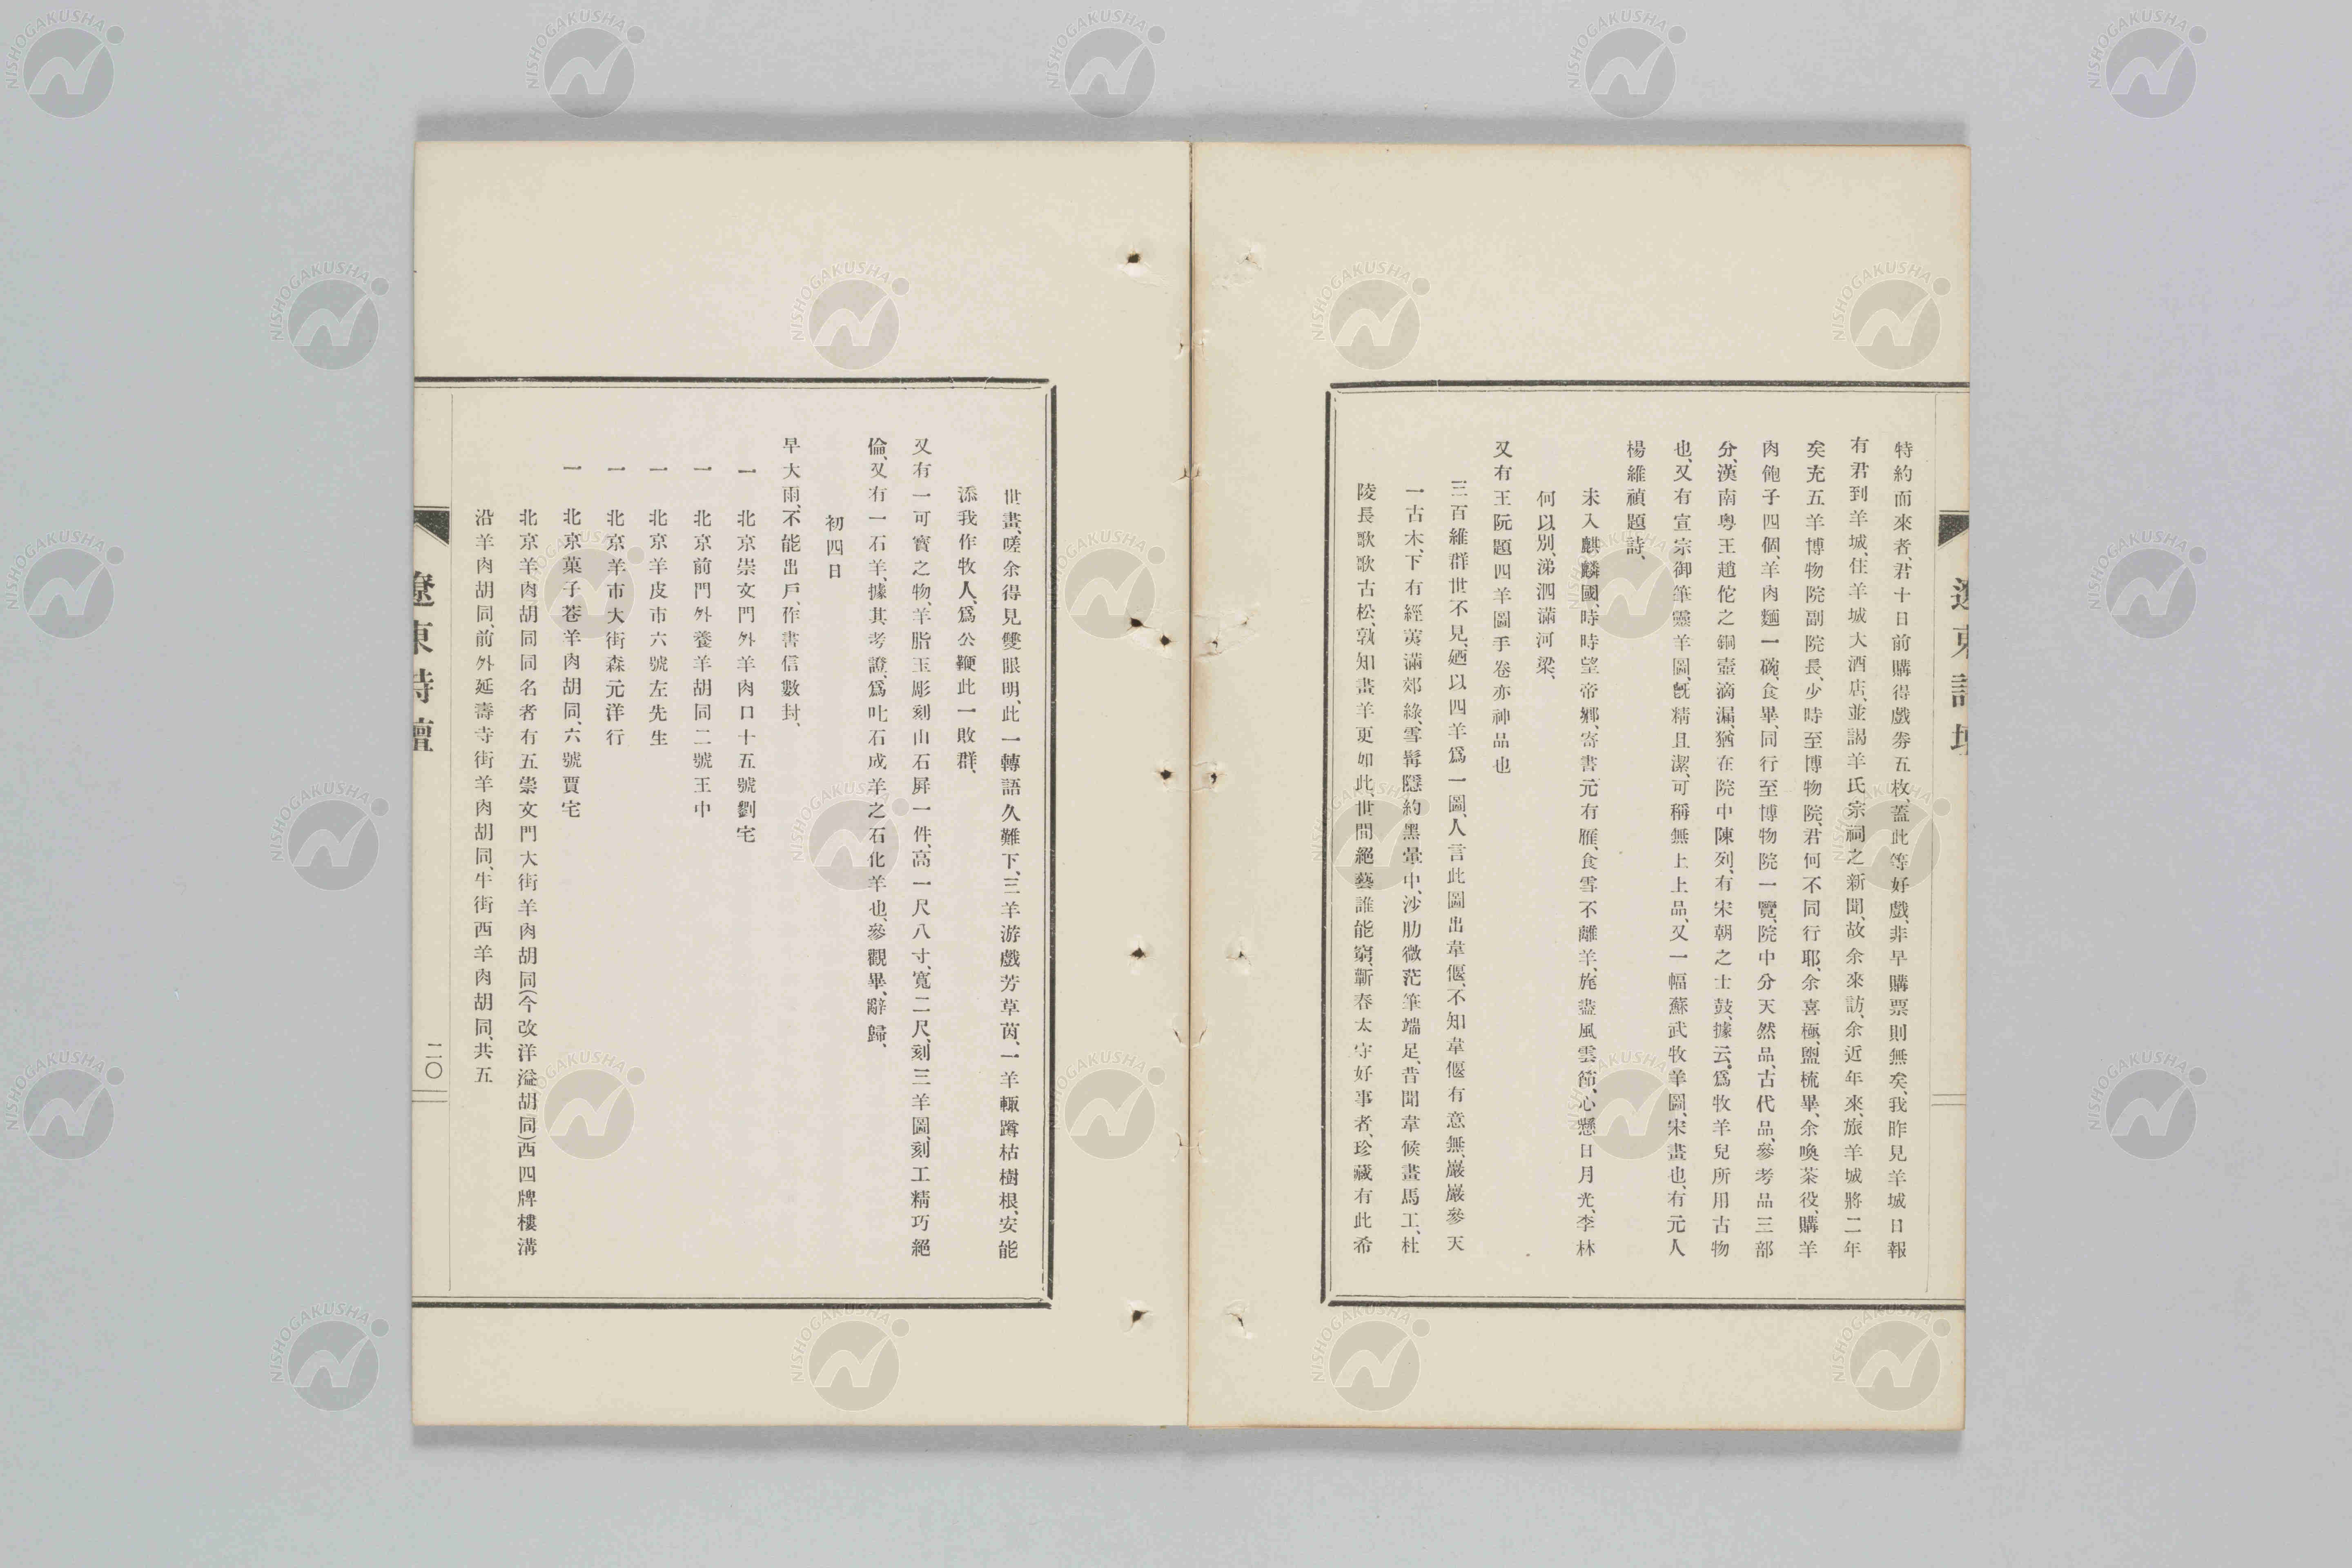 特約而來者、君十日前購得戲劵五枚、蓋此等好戲、非早購票則無矣、我昨見羊城日報
有君到羊城、住羊城大酒店、並謁羊氏宗祠之新聞、故余來訪、余近年來、旅羊城將二年
矣充五羊博物院副院長、少時至博物院、君何不同行耶、余喜極、盥梳畢、余喚茶役、購羊
肉飽子四個、羊肉麵一碗、食畢、同行至博物院一覽、院中分天然品、古代品、參考品三部
分、漢南粵王趙佗之銅壺滴漏、猶在院中陳列、有宋朝之士鼓、據云、爲牧羊兒所用古物
也、又有宣宗御筆靈羊圖、旣精且潔、可稱無上上品、又一幅蘇武牧羊圖、宋畫也、有元人
楊維禎題詩、
未入麒麟國、時時望帝鄉、寄書元有雁、食雪不離羊、旄盡風雲節、心懸日月光、李林
何以別、涕泗滿河梁、
又有王阮題四羊圖手卷亦神品也
三百維群世不見、廼以四羊爲一圖、人言此圖出韋偃、不知韋偃有意無、巖巖參天
一古木、下有經荑滿郊綠、雪髯隱約黑暈中、沙肋微茫筆端足、昔聞韋候畫馬工、杜
陵長歌歌古松、孰知畫羊更如此、世間絕藝誰能窮、蘄春太守好事者、珍藏有此希
世畫、嗟余得見雙眼明、此一轉語久難下、三羊游戲芳草茵、一羊輙蹲枯樹根、安能
添我作牧人、爲公鞭此一敗群、
又有一可寳之物、羊脂玉彫刻山石屛一件、高一尺八寸、寬二尺、刻三羊圖、刻工精巧絕
倫、又有一石羊、據其考證、爲叱石成羊之石化羊也、參觀畢、辭歸、
初四日
早大雨、不能出戶、作書信數封、
一 北京崇文門外羊肉口十五號劉宅
一 北京前門外養羊胡同二號王中
一 北京羊皮市六號左先生
一 北京羊市大街森元洋行
一 北京菓子巷羊肉胡同、六號賈宅
北京羊肉胡同同名者有五崇文門大街羊肉胡同(今改洋溢胡同)西四牌樓溝
沿羊肉胡同、前外延壽寺街羊肉胡同、牛街西羊肉胡同、共五
遼東詩壇
二〇